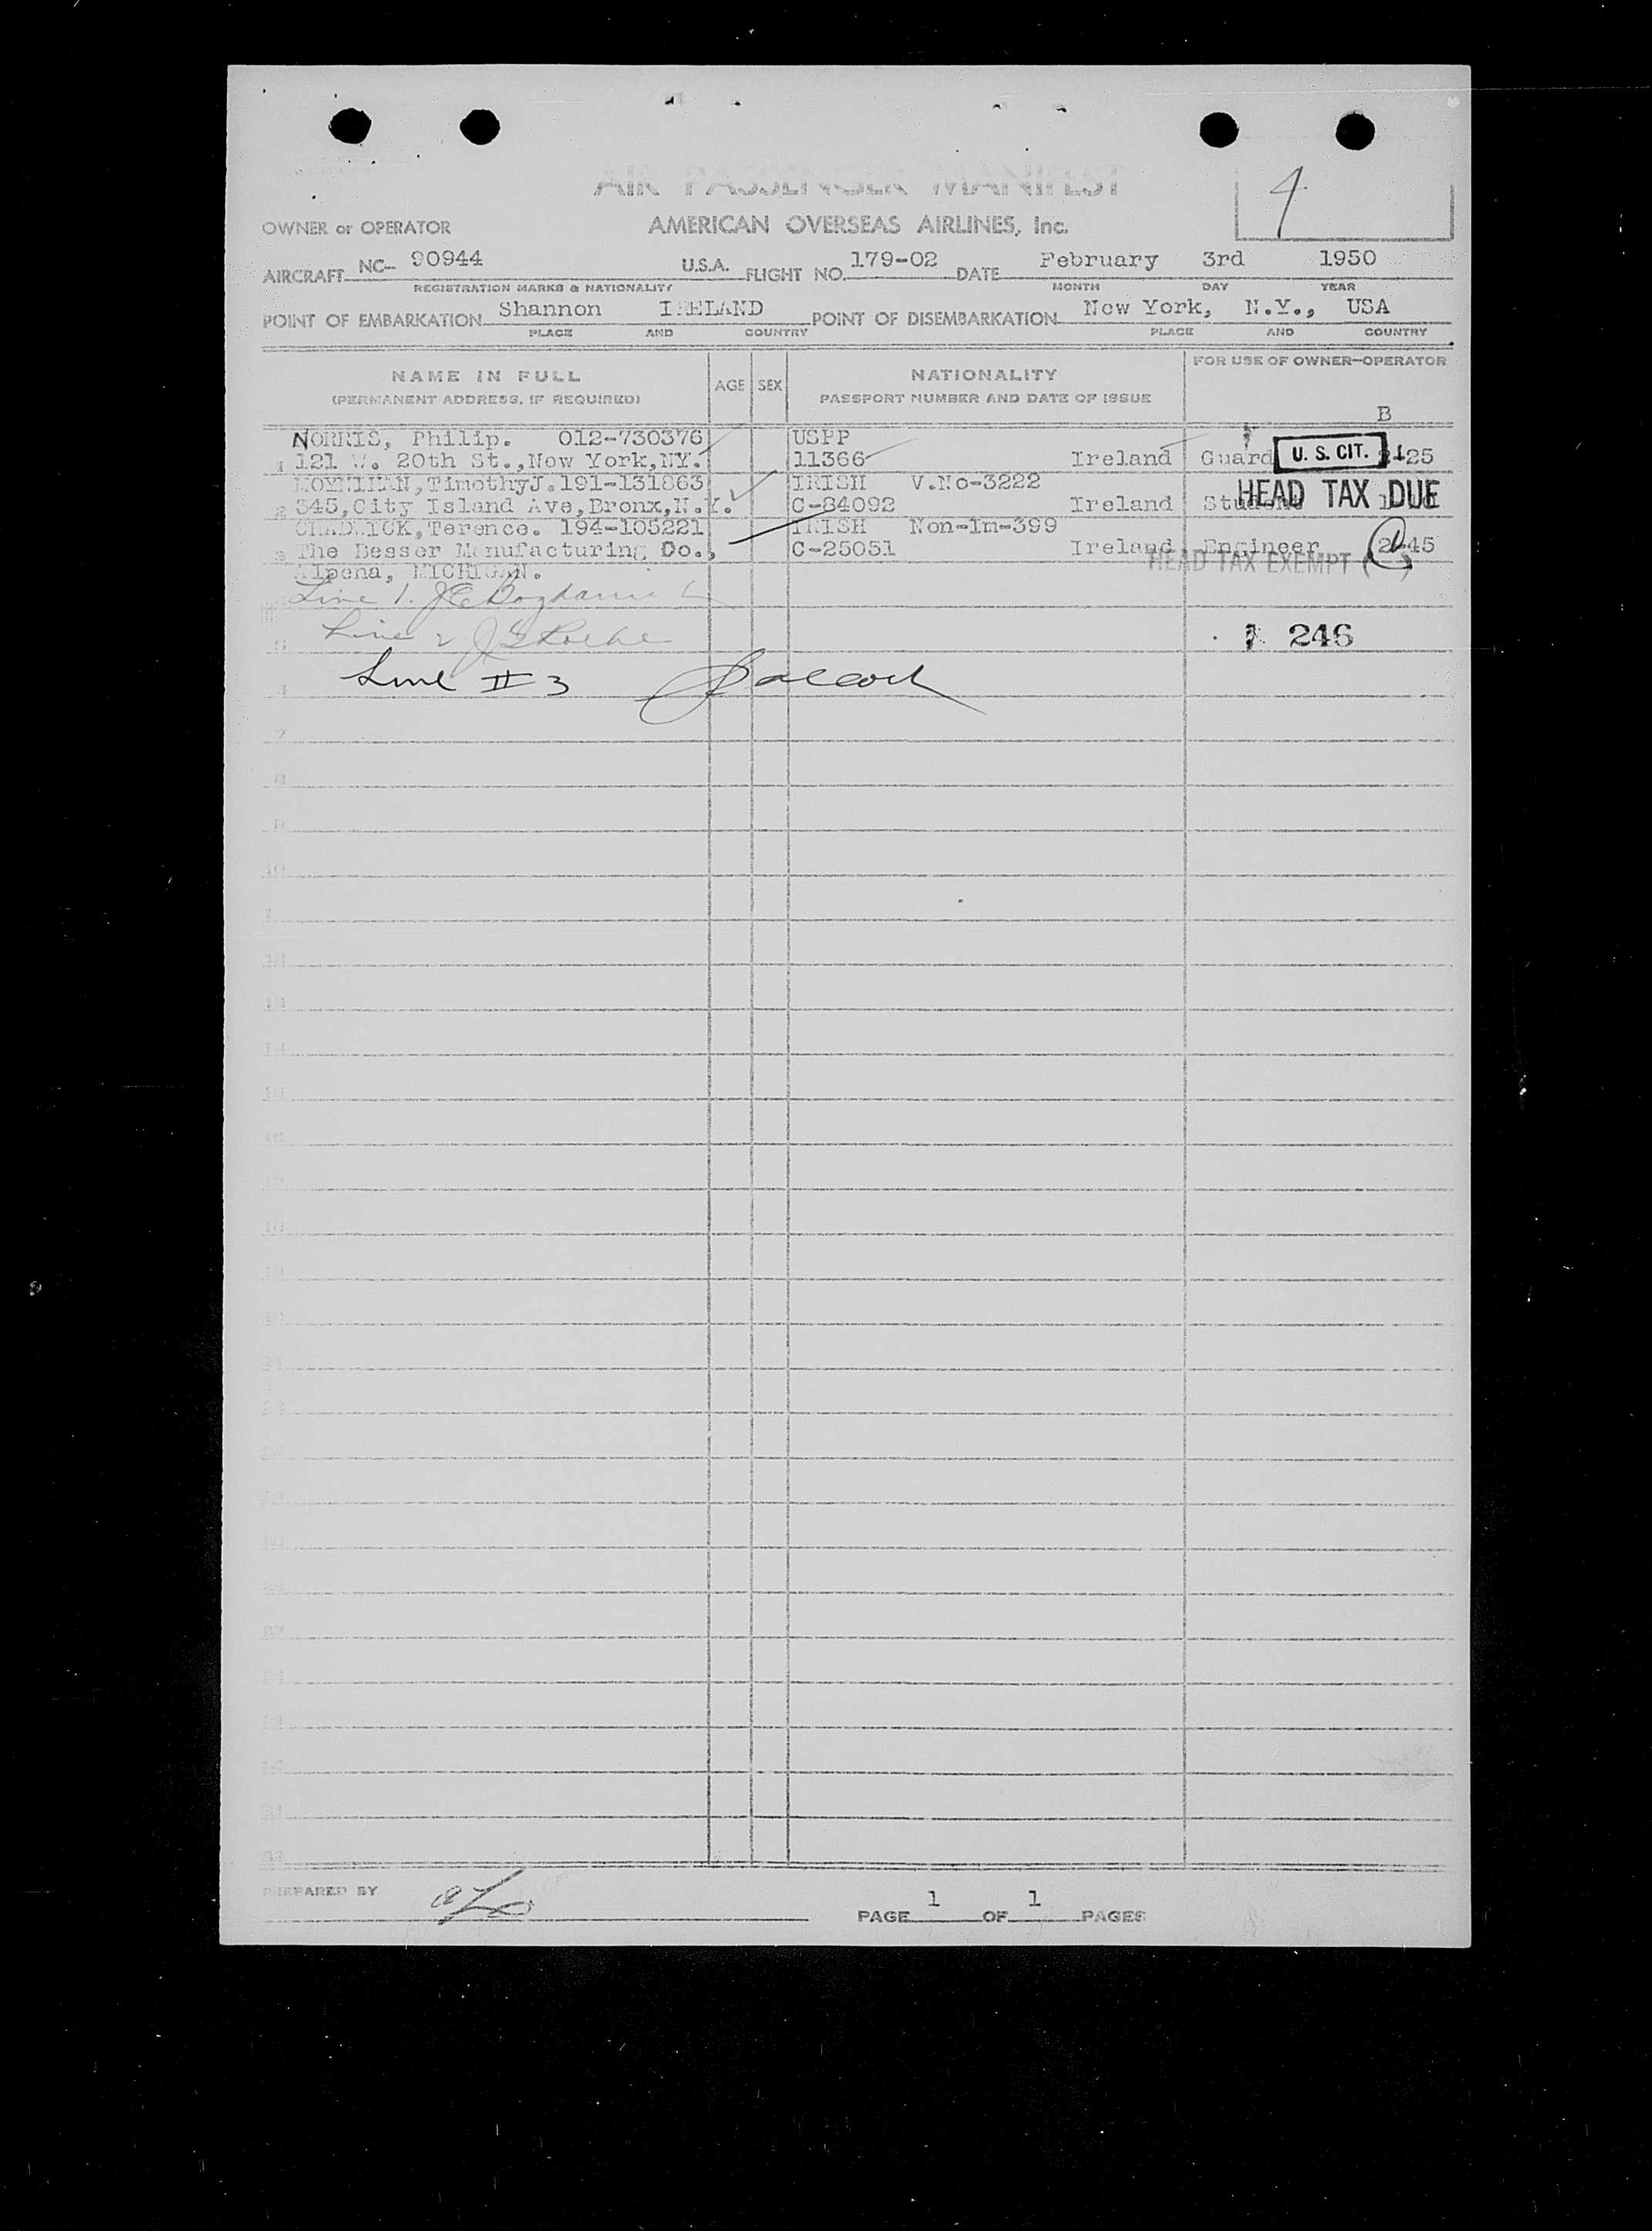 AIR PASSENGER MANIFEST
4
OWNER or OPERATOR AMERICAN OVERSEAS AIRLINES, Inc.
AIRCRAFT NC- 90944 U.S.A. FLIGHT NO. 179-02 DATE February 3rd 1950
REGISTRATION MARKS & NATIONALITY MONTH DAY YEAR
POINT OF EMBARKATION Shannon IRELAND POINT OF DISEMBARKATION New York, N.Y., USA
PLACE AND COUNTRY PLACE AND COUNTRY
NAME IN FULL AGE SEX NATIONALITY FOR USE OF OWNER-OPERATOR
(PERMANENT ADDRESS, IF REQUIRED) PASSPORT NUMBER AND DATE OF ISSUE
B
NORRIS, Philip. 012-730376 USPP
1 121 W. 20th St.,New York,NY. 11366 Ireland Guard U. S. CIT. 25
MOYNIHAN,TimothyJ.191-131863 IRISH V.No-3222
2 545,City Island Ave,Bronx,N.Y. C-84092 Ireland Student HEAD TAX DUE
CHADWICK,Terence. 194-105221 IRISH Non-Im-399
3 The Besser Manufacturing Co., C-25051 Ireland Engineer 2-45
HEAD TAX EXEMPT
Alpena, MICHIGAN.
Line 1.
Line 2
246
Line II 3
7
8
9
10
11
12
13
14
15
16
17
18
19
PREPARED BY PAGE 1 OF 1 PAGES